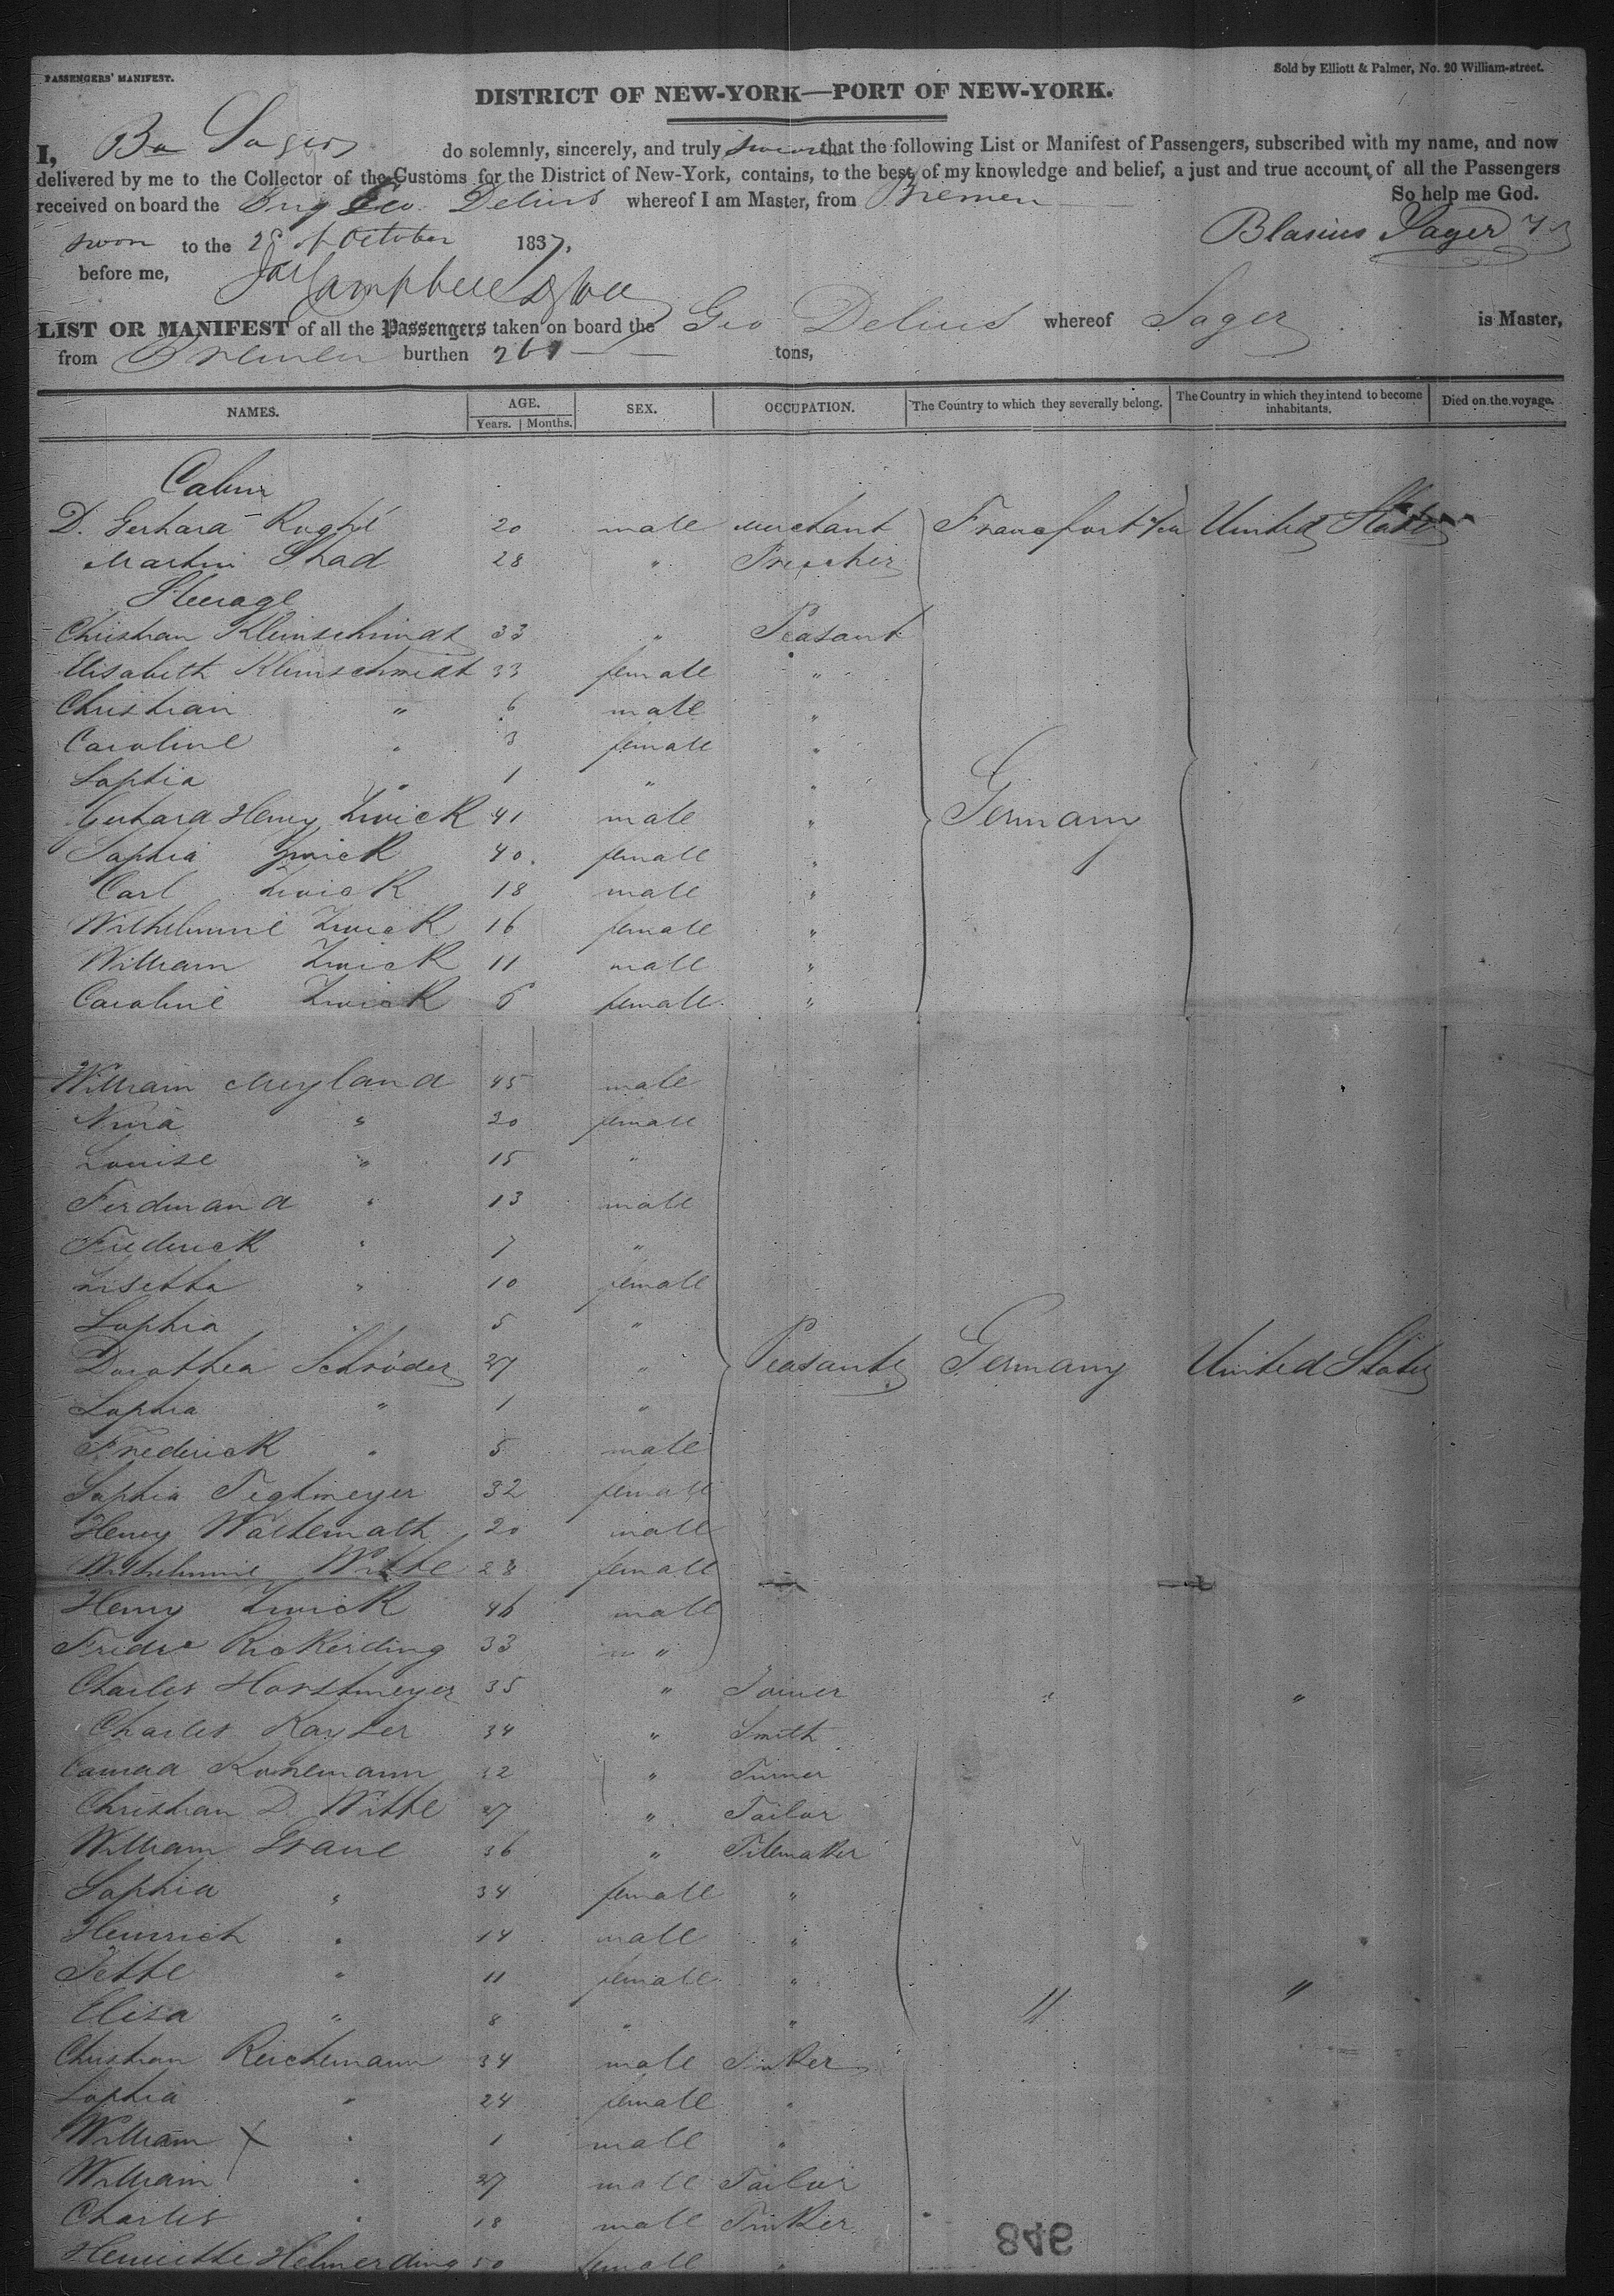 PASSENGERS' MANIFEST.
Sold by Elliott & Palmer, No. 20 William-street.
DISTRICT OF NEW-YORK—PORT OF NEW-YORK.
I, do solemnly, sincerely, and truly swear that the following List or Manifest of Passengers, subscribed with my name, and now
delivered by me to the Collector of the Customs for the District of New-York, contains, to the best of my knowledge and belief, a just and true account of all the Passengers
received on board the Brig Geo. Delius whereof I am Master, from Bremen So help me God.
to the 28 of October 1837, Blasius Sager
before me, Campbell
LIST OR MANIFEST of all the Passengers taken on board the Geo Delius whereof Sager is Master,
from Bremen burthen tons,
NAMES. AGE. SEX. OCCUPATION. The Country to which they severally belong. The Country in which they intend to become inhabitants. Died on the voyage.
Years. Months.
Cabin
D. Gerhard 20 male Merchant Francfort United States
Martin Shad 28 " Preacher
Steerage
Christian Kleinschmidt 33 " Peasant
Elisabeth Kleinschmidt 33 female "
Christian " 6 male "
Caroline " 3 female "
Sophia " 1 " "
Gerhard Henry Zwick 41 male " Germany
Sophia Zwick 40. female "
Carl Zwick 18 male "
Wilhelmine Zwick 16 female "
William Zwick 11 male "
Caroline Zwick female "
William Meyland 45 male
" female
Louise " 15 "
Ferdinand " 13 male
Frederick " 7 "
Lisetta " 10 female
Sophia " 5 "
Dorothea Schröder 27 " Peasants Germany United States
Sophia " 1 "
Frederick " 5 male
Sophia Tegtmeyer 32 female
Henry Wathemath 20 male
Wilhelmine Witte 28 female
Henry Zwick 46 male
Fredre Rickerding 33 "
Charles Horstmeyer 35 " Joiner " "
Charles Kayser 34 " Smith
Conrad Konemann 32 " Turner
Christian D. Witte 27 " Tailor
William Grave 36 " Tilemaker
Sophia " 34 female "
Heinrich " 14 male "
Jette " 11 female "
Elisa " 8 " " " "
Christian Reichemann 34 male Tinker
Sophia " 24 female "
William " 1 male "
William " 27 male Tailor
Charles " 18 male Tinker
Henriette Helmerding 50 female "
948